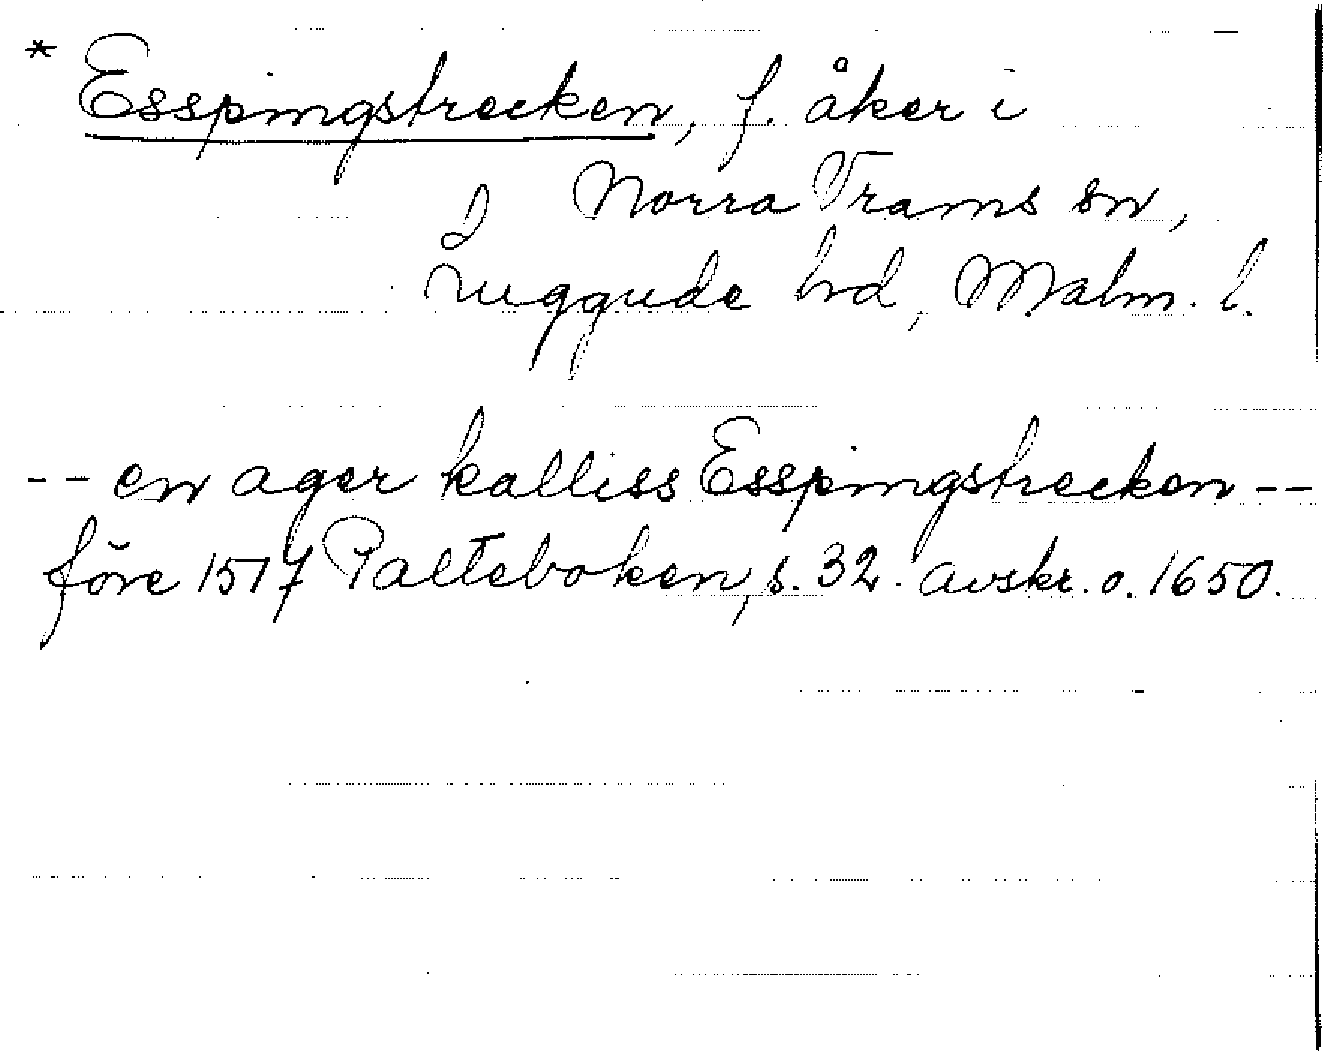 * Esspingstrecken, f. åker i
Norra Vrams sn,
Luggude hd, Malm. l.
-- en ager kalliss Esspingstrecken --
före 1517 Palteboken, s. 32. avskr. o. 1650.